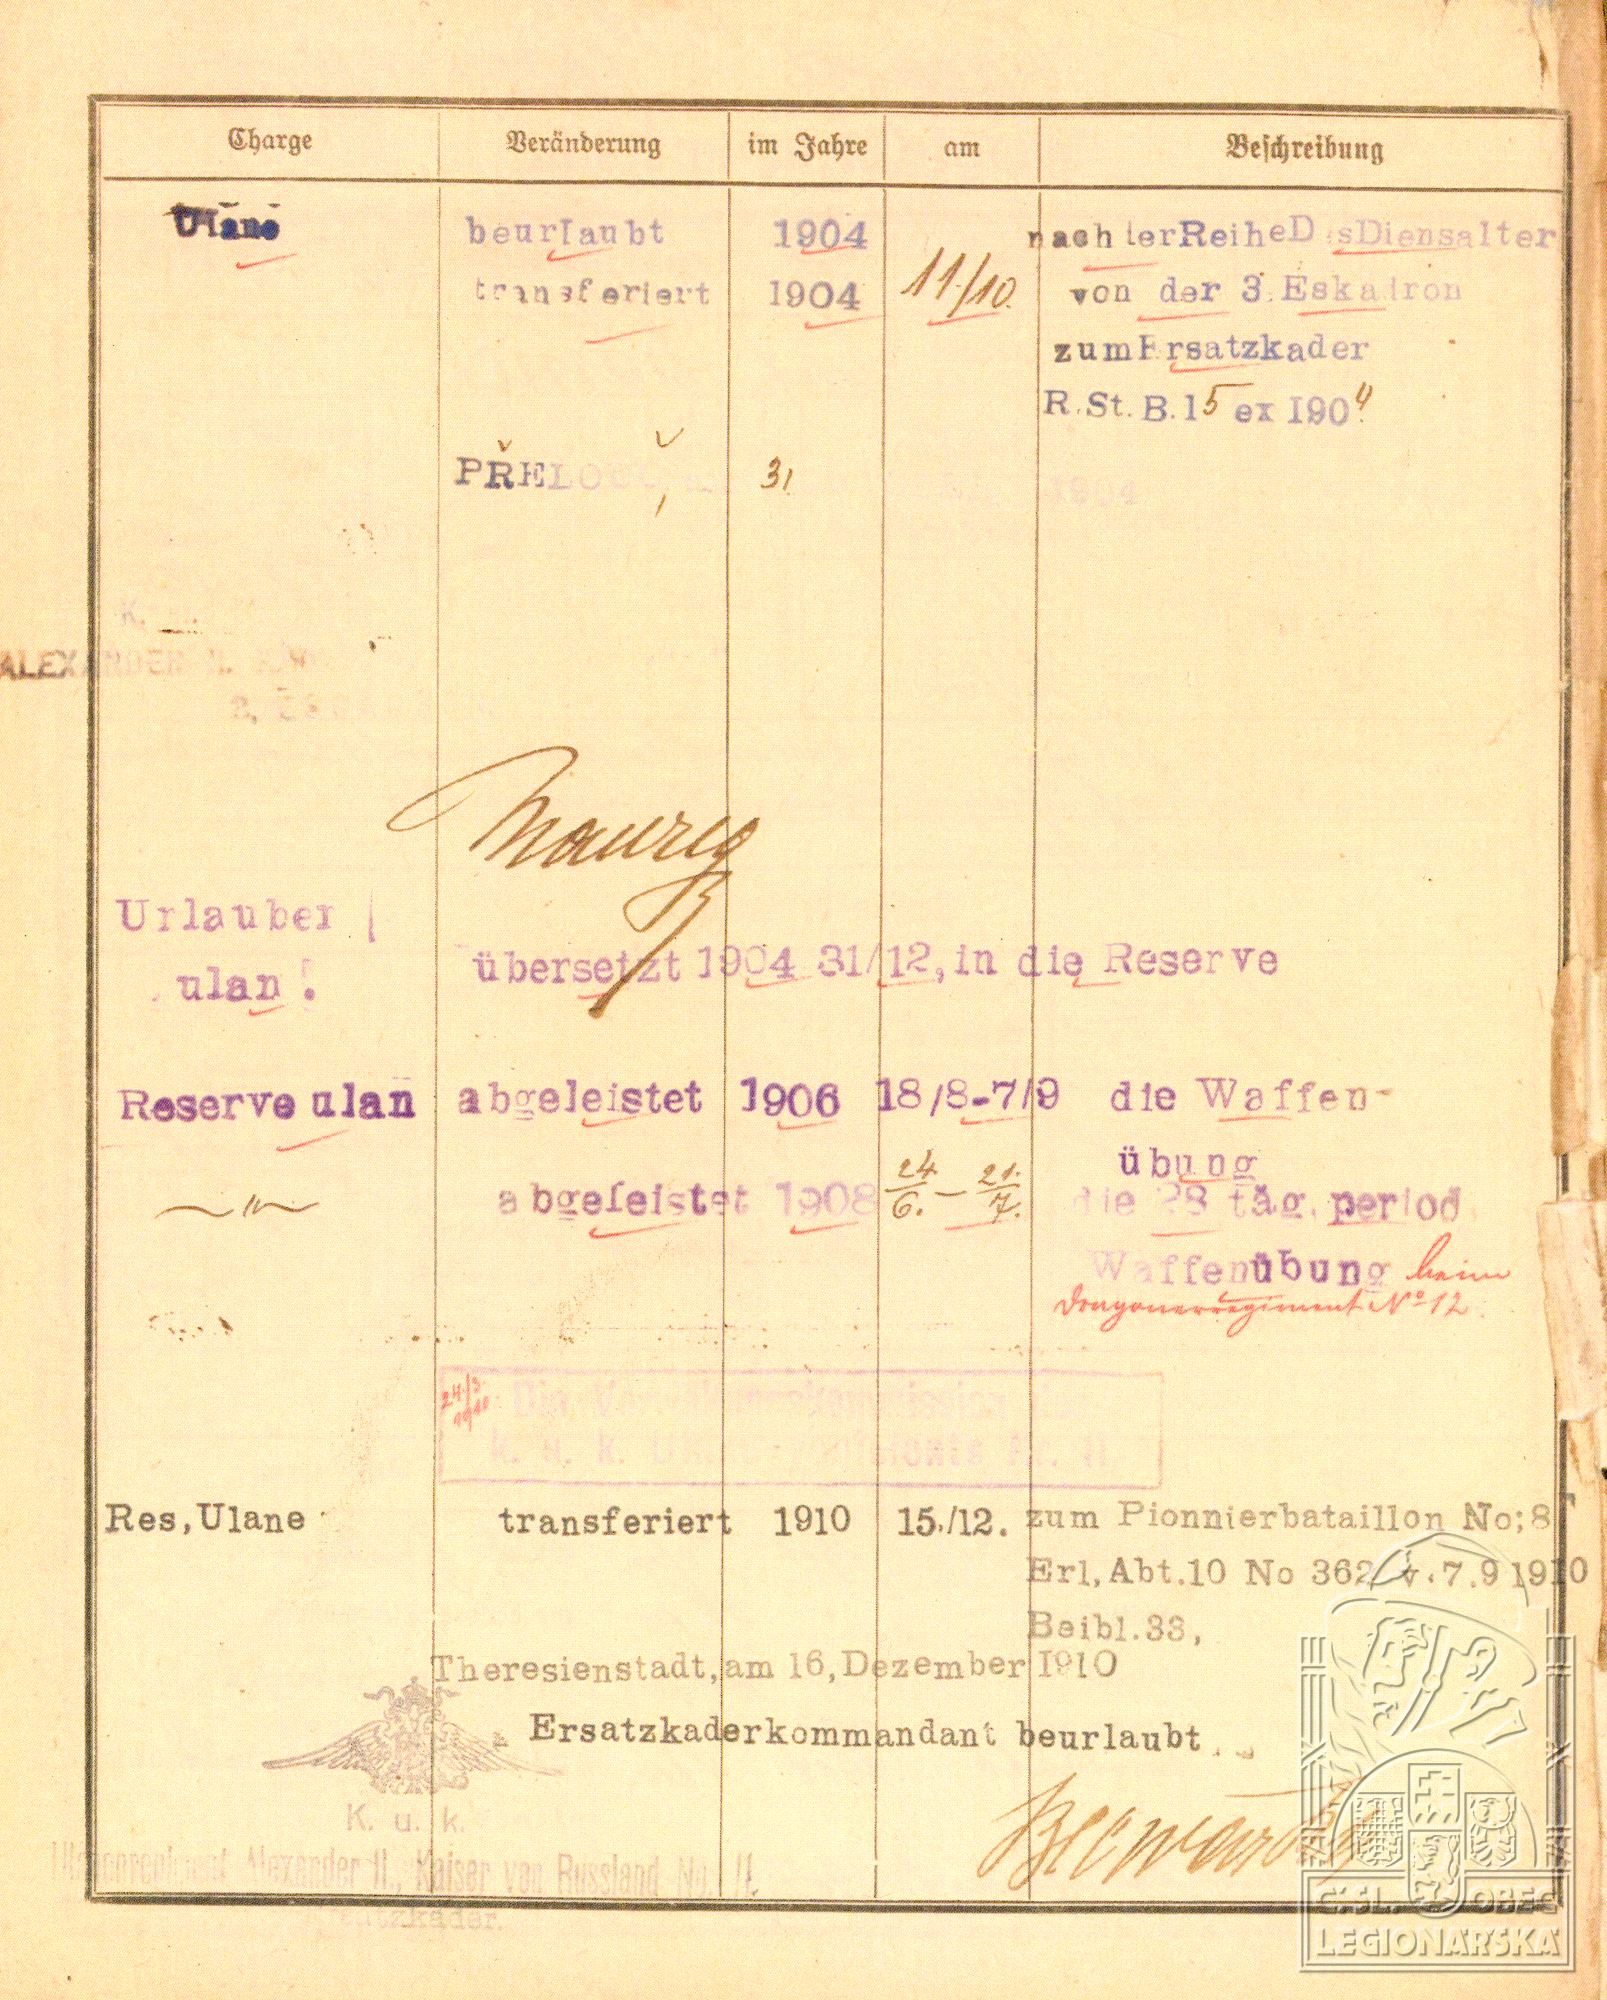 Charge Veränderung im Jahre am Beschreibung
Ulane beurlaubt 1904 nach der Reihe Des Diensalter
transferiert 1904 11/10. von der 3. Eskadron
zum Ersatzkader
R.St.B.15 ex I904
PŘELOUČ 31 1904
K.
ALEXANDER II.
2.
Urlauber
ulan übersetzt 1904 31/12, in die Reserve
Reserve ulan abgeleistet 1906 18/8-7/9 die Waffen-
übung
—"— abgeleistet 1908 24/6. - 21./7. die 28 täg. period
Waffenübung beim
Dragonerregiment No 12
24/3 1910
k. u. k.
Res,Ulane transferiert 1910 15./12. zum Pionnierbataillon No;8
Erl,Abt.10 No 362 v.7.9 1910
Beibl.33,
Theresienstadt,am 16,Dezember I910
Ersatzkaderkommandant beurlaubt
K. u. k.
Ulanenregiment Alexander II., Kaiser von Russland No. 11.
Ersatzkader.
Č.SL. OBEC
LEGIONÁŘSKÁ